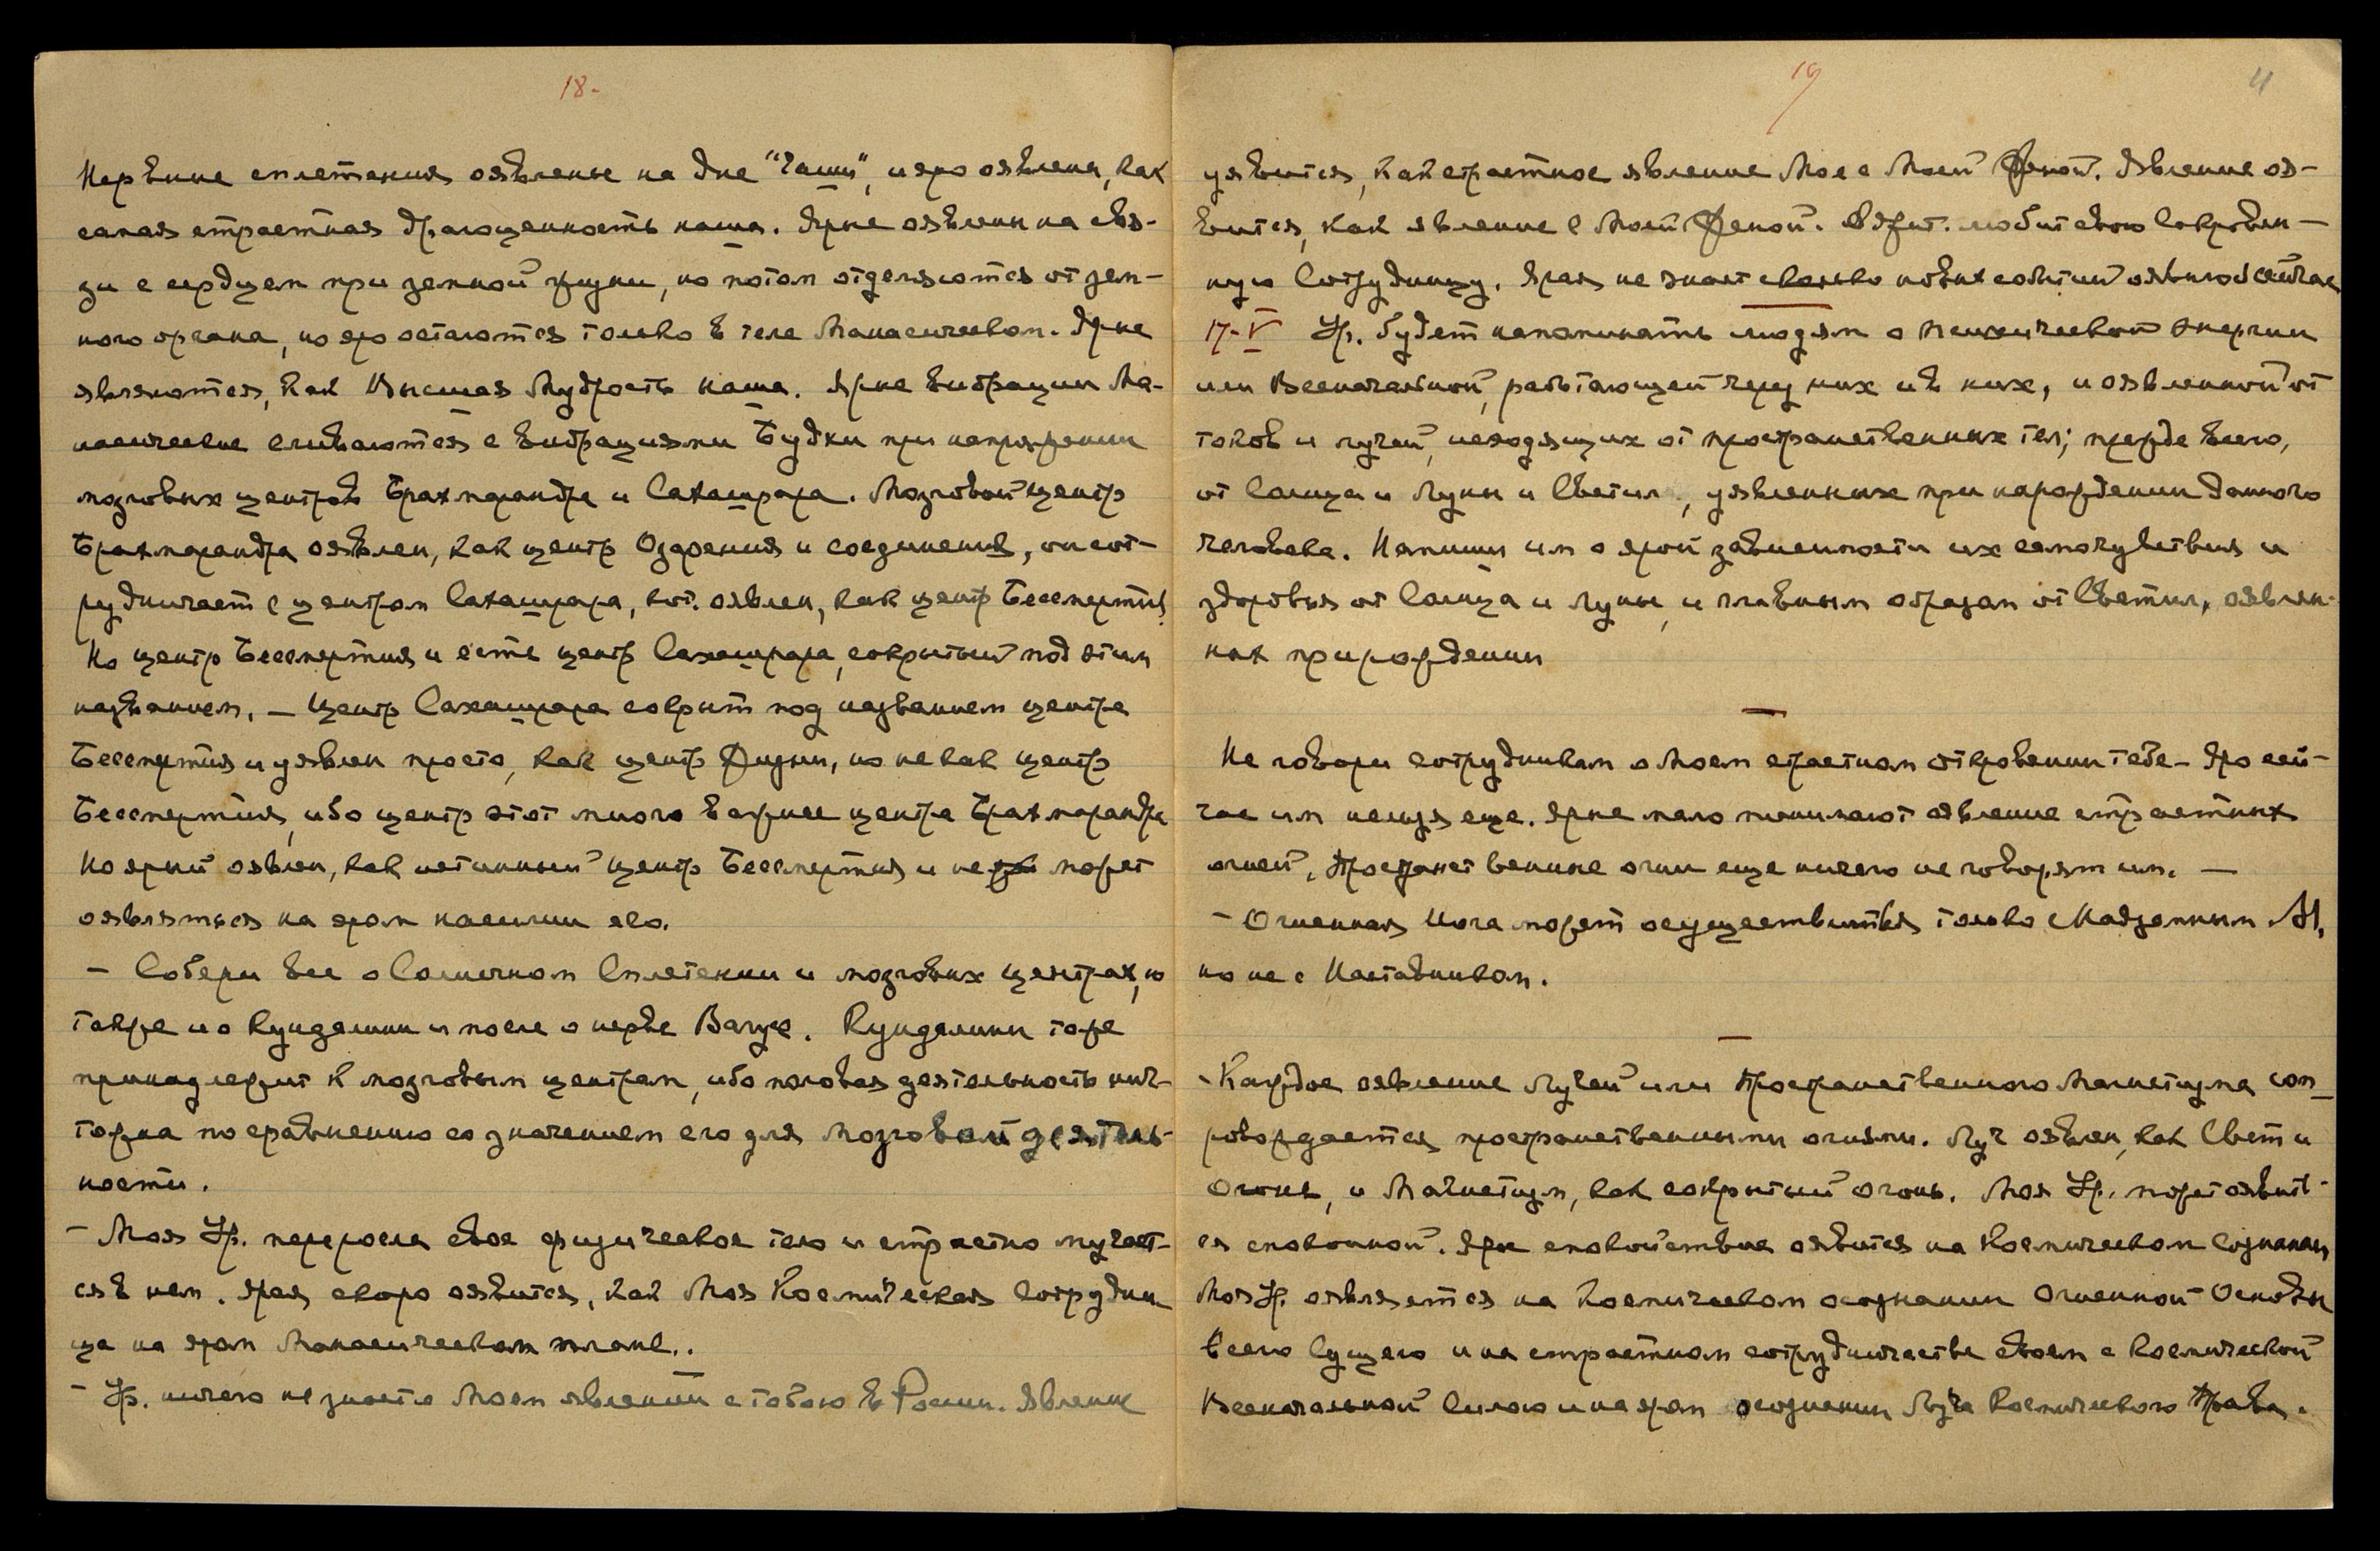 18-
Нервные сплетения оявлены на дне "Чаши", и яро оявлены, как
самая страстная драгоценность наша. Ярые оявлены на свя-
зи с сердцем при земной жизни, но потом отделяются от зем-
ного органа, но яро остаются только в теле Манасическом. Ярые
являются, как Высшая Мудрость наша. Ярые вибрации Ма-
насические сливаются с вибрациями Буддхи при напряжении
мозговых центров Брахмарандра и Сахасрара. Мозговой центр
Брахмарандра оявлен, как центр Озарения и соединения, он сот-
рудничает с центром Сахасрара, кот. оявлен, как центр Бессмертия.
Но центр Бессмертия и есть центр Сахасрара, сокрытый под этим
названием. — Центр Сахасрара сокрыт под названием центра
Бессмертия и уявлен просто, как центр Жизни, но не как центр
Бессмертия, ибо центр этот много важнее центра Брахмарандра
Но ярый оявлен, как истинный центр Бессмертия и не может
оявляться на яром насилии его.
– Собери все о Солнечном Сплетении и мозговых центрах, но
также и о Кундалини и после о нерве Вагус. Кундалини тоже
принадлежит к мозговым центрам, ибо половая деятельность нич-
тожна по сравнению со значением его для мозговой деятель-
ности.
– Моя Ур. переросла свое физическое тело и страстно мучает-
ся в нем. Ярая скоро оявится, как Моя Космическая Сотрудни-
ца на яром Манасическом плане..
– Ур. ничего не знает о Моем явлении с тобою в России. Явление
19
4
уявится, как страстное явление Мое с Моей Женой. Явление оя-
вится, как явление с Моей Женой. Влад. любит свою Сокровен-
ную Сотрудницу. Ярая не знает сколько новых событий оявилось сейчас
17-V Ур. будет напоминать людям о психической энергии
или Всеначальной, работающей через них и в них, и оявленной от
токов и лучей, исходящих от пространственных тел; прежде всего,
от Солнца и Луны и Светил, уявленных при нарождении данного
человека. Напиши им о ярой зависимости их самочувствия и
здоровья от Солнца и Луны, и главным образом от Светил, оявлен-
ных при рождении
Не говори сотрудникам о Моем страстном откровении тебе – Яро сей-
час им нельзя еще. Ярые мало понимают оявление страстных
огней. Пространственные огни еще ничего не говорят им. —
– Огненная Йога может осуществиться только с Надземным М,
но не с Наставником.
- Каждое оявление Лучей или Пространственного Магнетизма соп-
ровождается пространственными огнями. Луч оявлен, как Свет и
Огонь, и Магнетизм, как сокрытый огонь. Моя Ур. может оявить-
ся спокойной. Ярое спокойствие оявится на Космическом Сознании
Моя Ур. оявляется на Космическом осознании Огненной Основы
всего Сущего и на страстном сотрудничестве своем с Космической
Всеначальной Силою и на яром осознании Луча Космического Права.